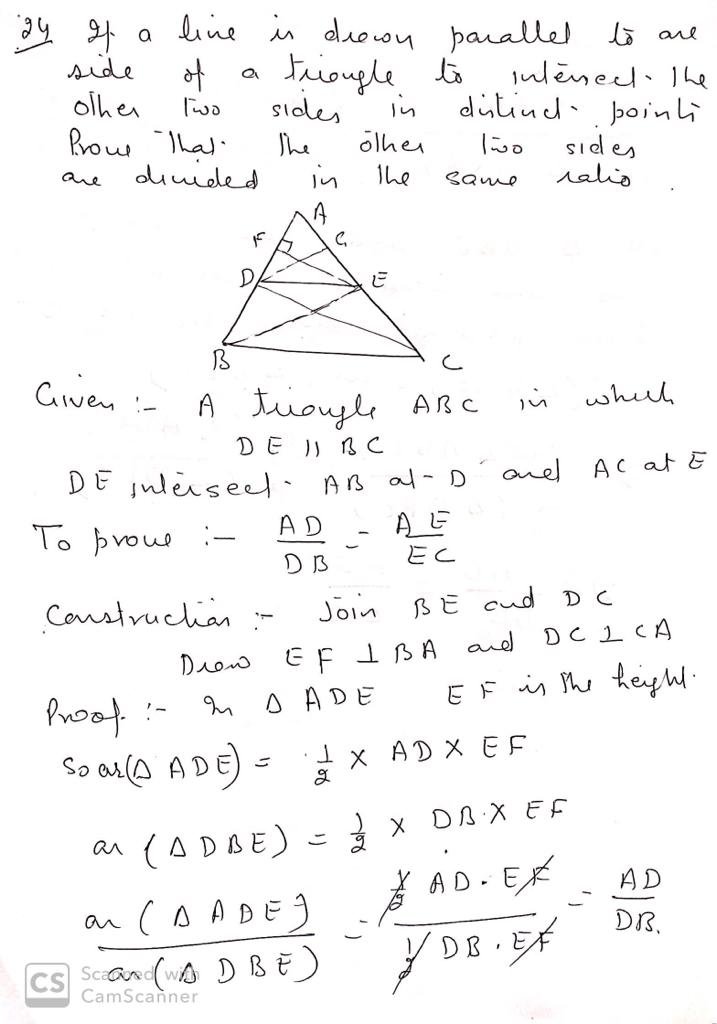 24 If a line is drawn parallel to one
side of a triangle to intersect the
other two sides in distinct points
Prove that the other two sides
are divided in the same ratio.
A
F G
D E
B C
Given :- A triangle ABC in which
DE || BC
DE intersect AB at D and AC at E
To prove :- AD/DB = AE/EC
Construction :- Join BE and DC
Draw EF ⊥ BA and DC ⊥ CA
Proof :- In Δ ADE EF is the height.
So ar(Δ ADE) = 1/2 × AD × EF
ar (Δ DBE) = 1/2 × DB × EF
ar (Δ ADE) / ar (Δ DBE) = 1/2 AD . EF / 1/2 DB . EF = AD/DB.
CS Scanned with
CamScanner